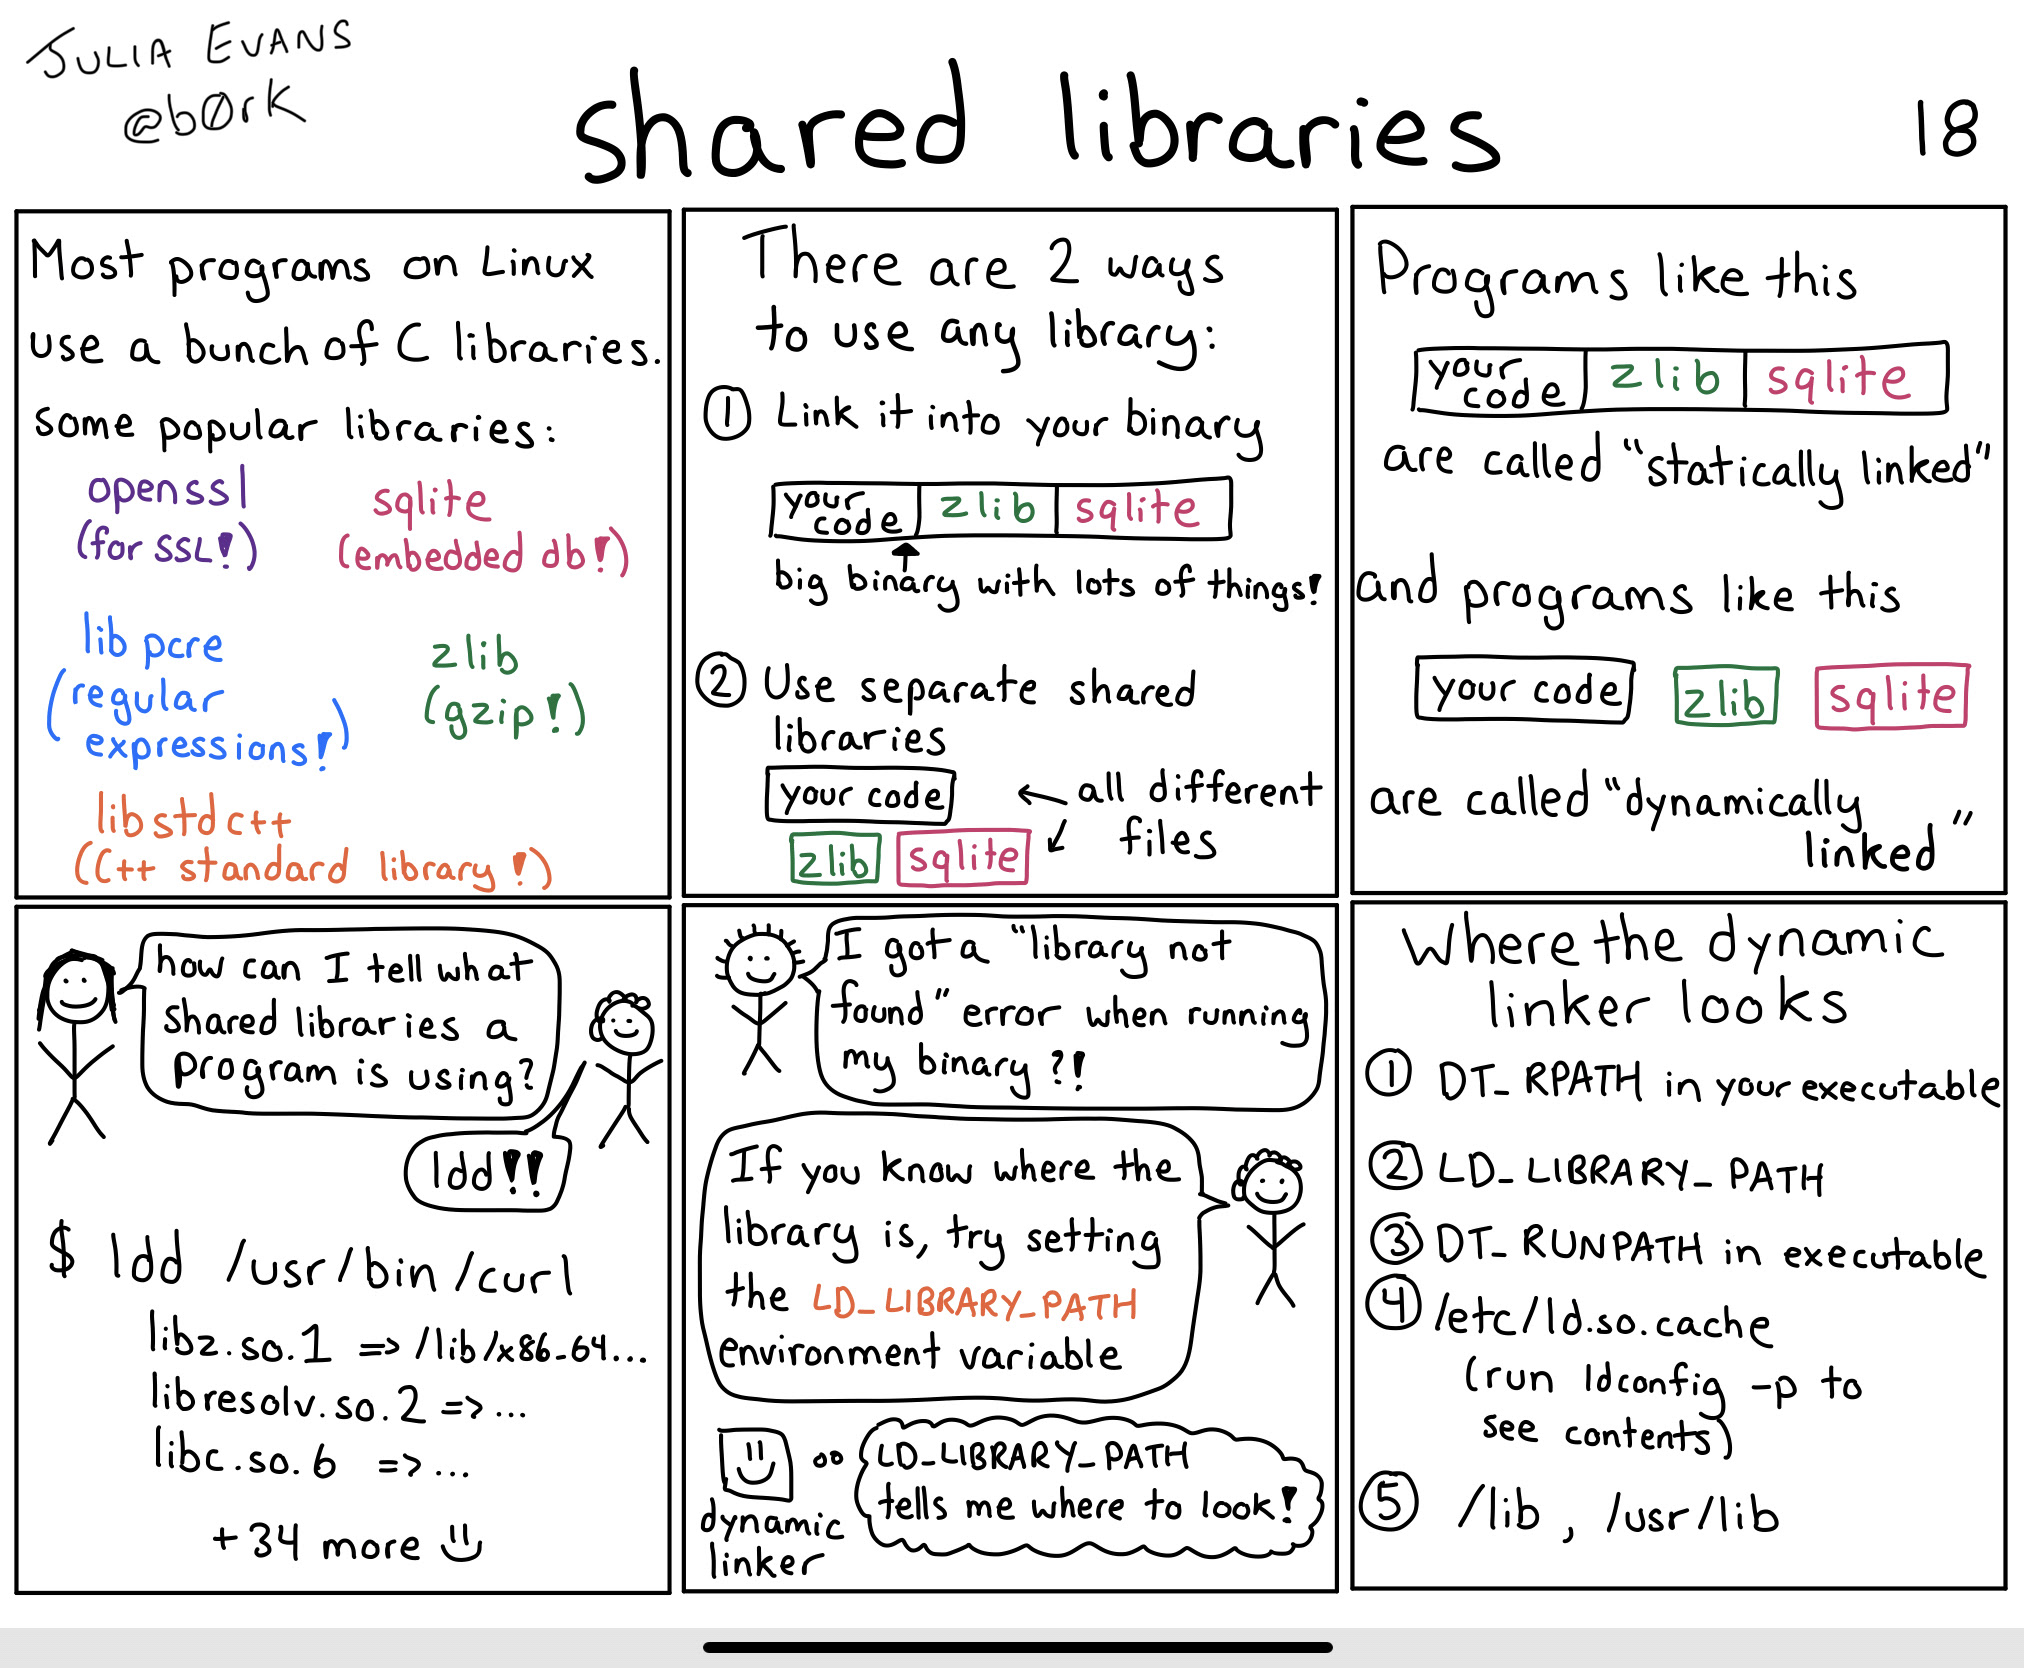 JULIA EVANS
@b0rk
shared libraries
18
Most programs on Linux
use a bunch of C libraries.
some popular libraries:
openssl
(for SSL!)
sqlite
(embedded db!)
libpcre
(regular
expressions!)
zlib
(gzip!)
libstdc++
(C++ standard library!)
There are 2 ways
to use any library:
① Link it into your binary
your code | zlib | sqlite
big binary with lots of things!
② Use separate shared
libraries
your code
zlib sqlite
← all different
↙ files
Programs like this
your code | zlib | sqlite
are called "statically linked"
and programs like this
your code zlib sqlite
are called "dynamically
linked"
how can I tell what
shared libraries a
program is using?
ldd!!
$ ldd /usr/bin/curl
libz.so.1 => /lib/x86-64...
libresolv.so.2 => ...
libc.so.6 => ...
+34 more
I got a "library not
found" error when running
my binary?!
If you know where the
library is, try setting
the LD_LIBRARY_PATH
environment variable
dynamic
linker
LD_LIBRARY_PATH
tells me where to look!
Where the dynamic
linker looks
① DT_RPATH in your executable
② LD_LIBRARY_PATH
③ DT_RUNPATH in executable
④ /etc/ld.so.cache
(run ldconfig -p to
see contents)
⑤ /lib, /usr/lib